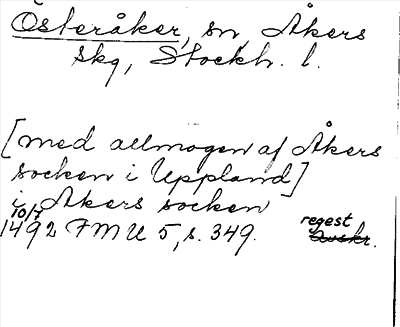 Österåker, sn, Åkers
skg, Stockh. l.
[med allmogen af Åkers
socken i Uppland]
i Åkers socken
10/7
1492 FMU 5, s. 349. regest
Avskr.